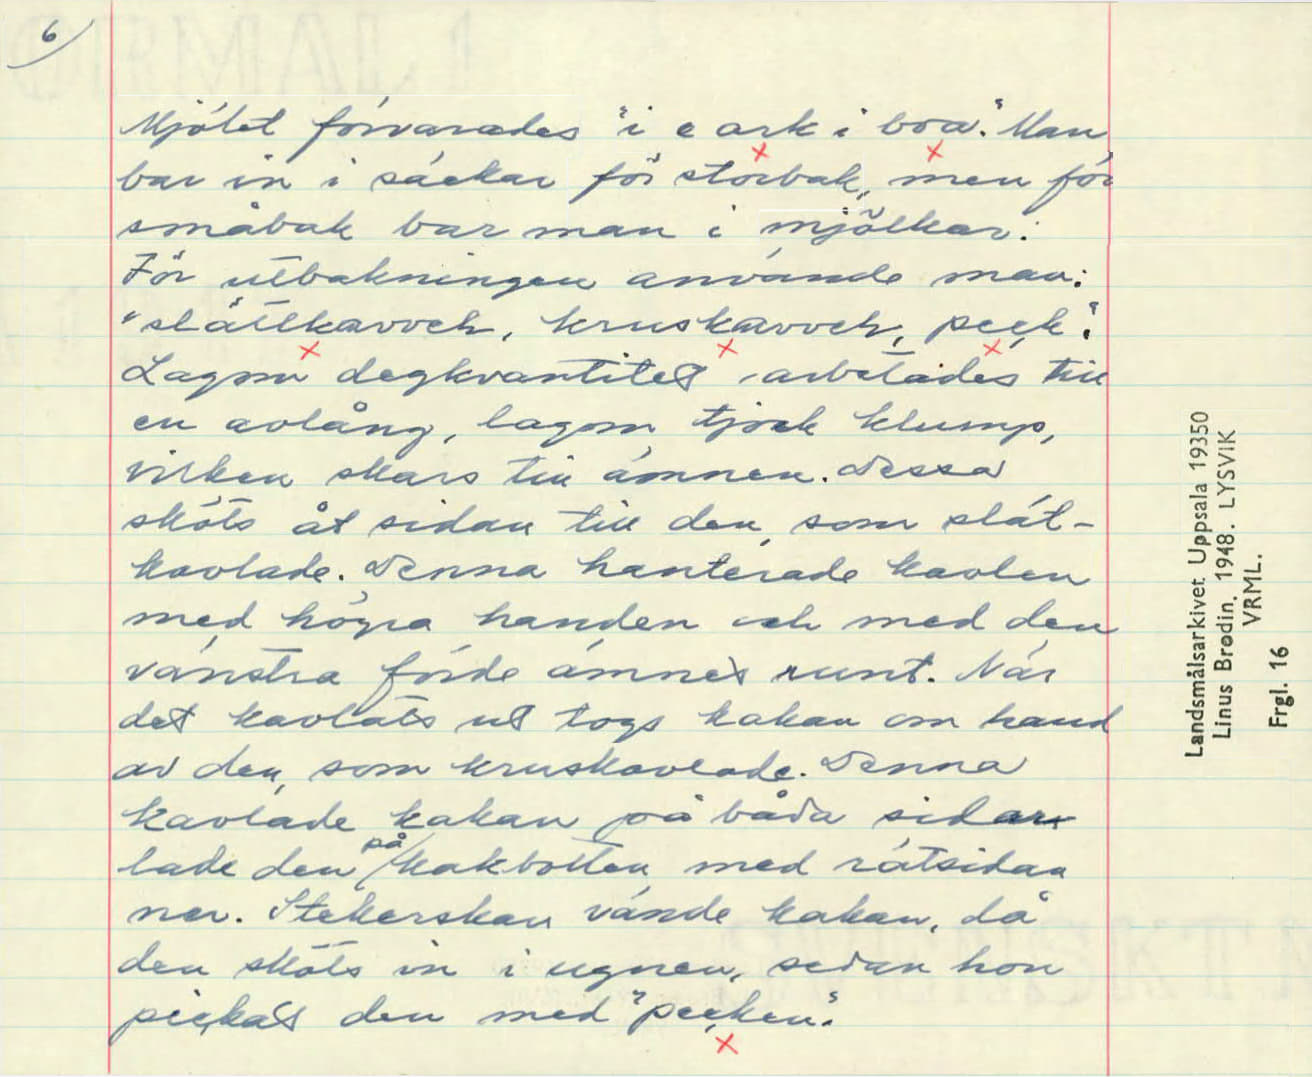 6
Mjölet förvarades "i e ark i boa". Man
bar in i säckar för storbak, men för
småbak bar man i mjölkar.
För utbakningen använde man:
"slättkavveh, kruskavveh, peçk".
Lagom degkvantitet arbetades till
en avlång, lagom tjock klump,
vilken skars till ämnen. Dessa
sköts åt sidan till den, som slät-
kavlade. Denna hanterade kavlen
med högra handen och med den
vänstra förde ämnet runt. När
det kavlats ut togs kakan om hand
av den, som kruskavlade. Denna
kavlade kakan på båda sidar
lade den på kakbotten med rätsidan
ner. Stekerskan vände kakan, då
den sköts in i ugnen, sedan hon
pickat den med "peçken".
Landsmålsarkivet, Uppsala 19350
Linus Brodin. 1948. LYSVIK
VRML.
Frgl. 16